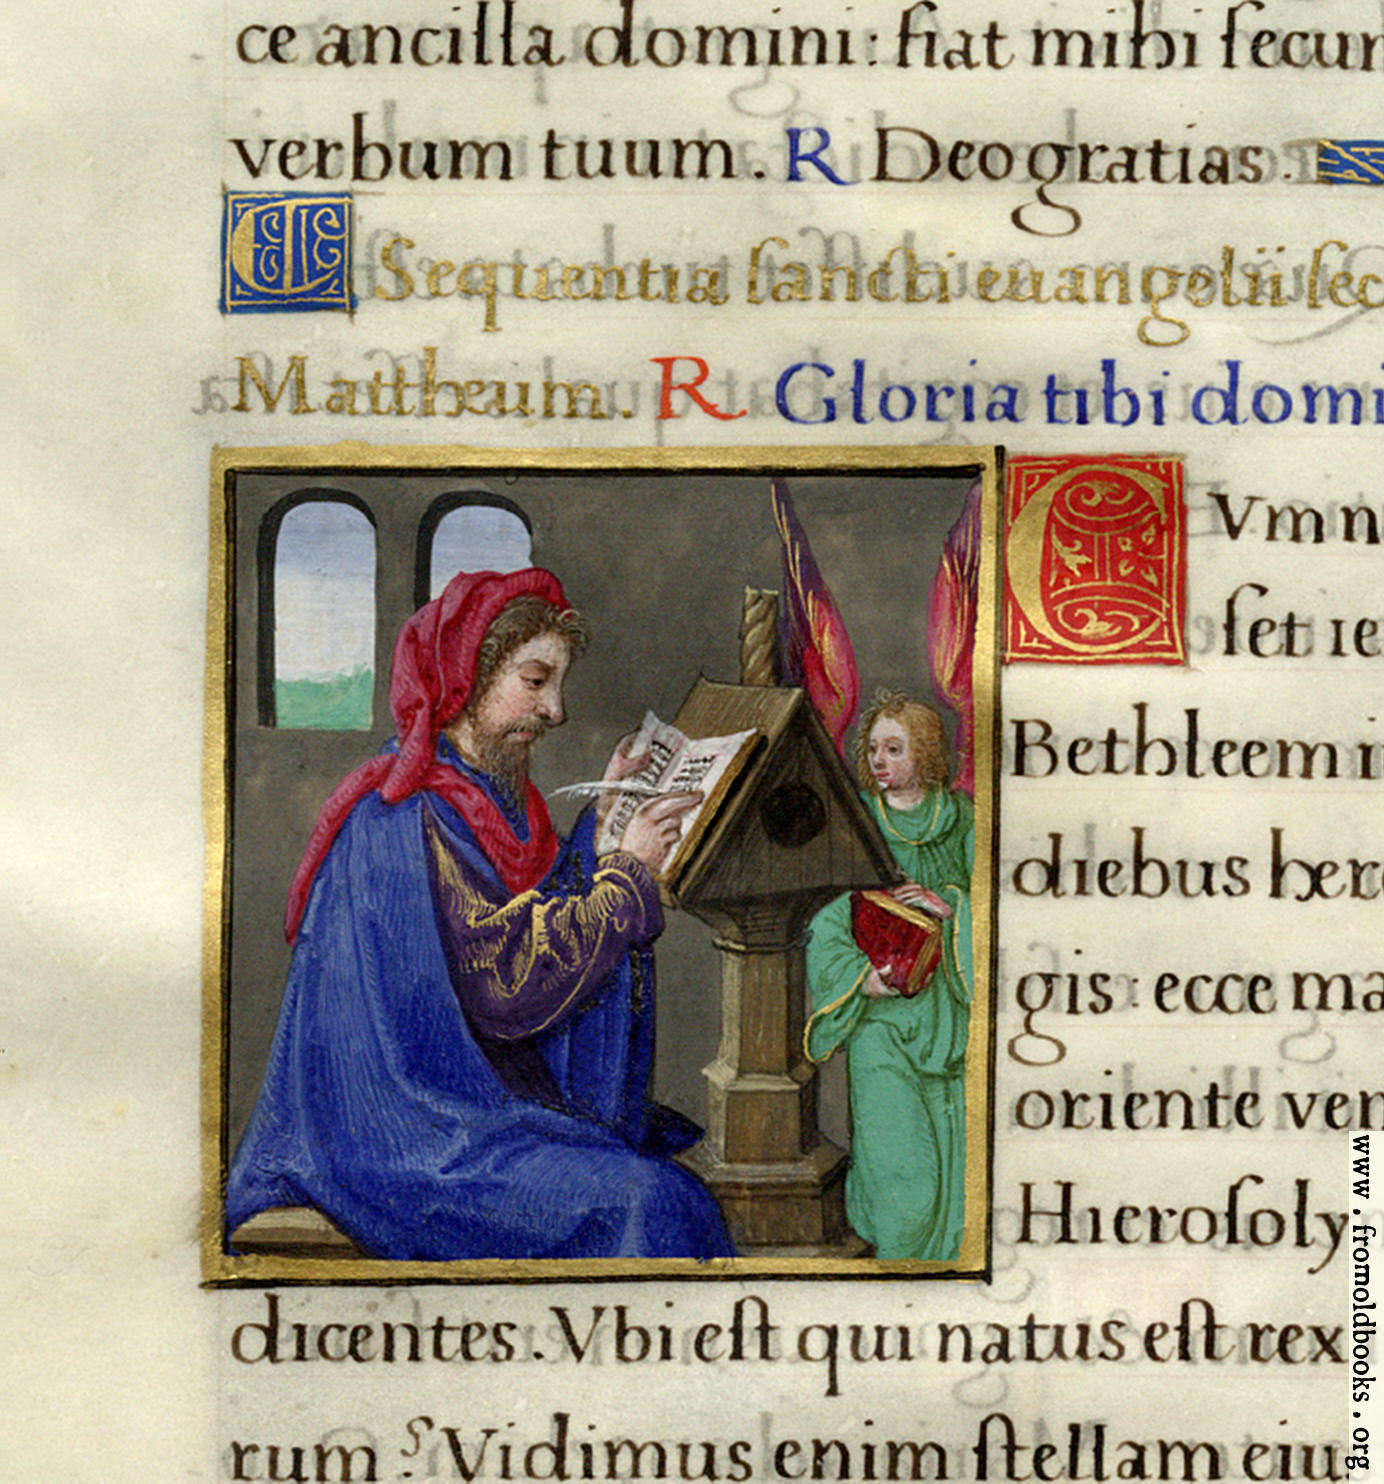 ce ancilla domini : fiat mihi ſecun
verbum tuum . R Deo gratias .
Sequentia ſancti euangelii ſec
Mattheum . R Gloria tibi domi
C Vm n
ſet ie
Bethleem i
diebus hero
gis : ecce ma
oriente ven
Hieroſoly
dicentes . Vbi eſt qui natus eſt rex
rum ? Vidimus enim ſtellam eiu
www.fromoldbooks.org